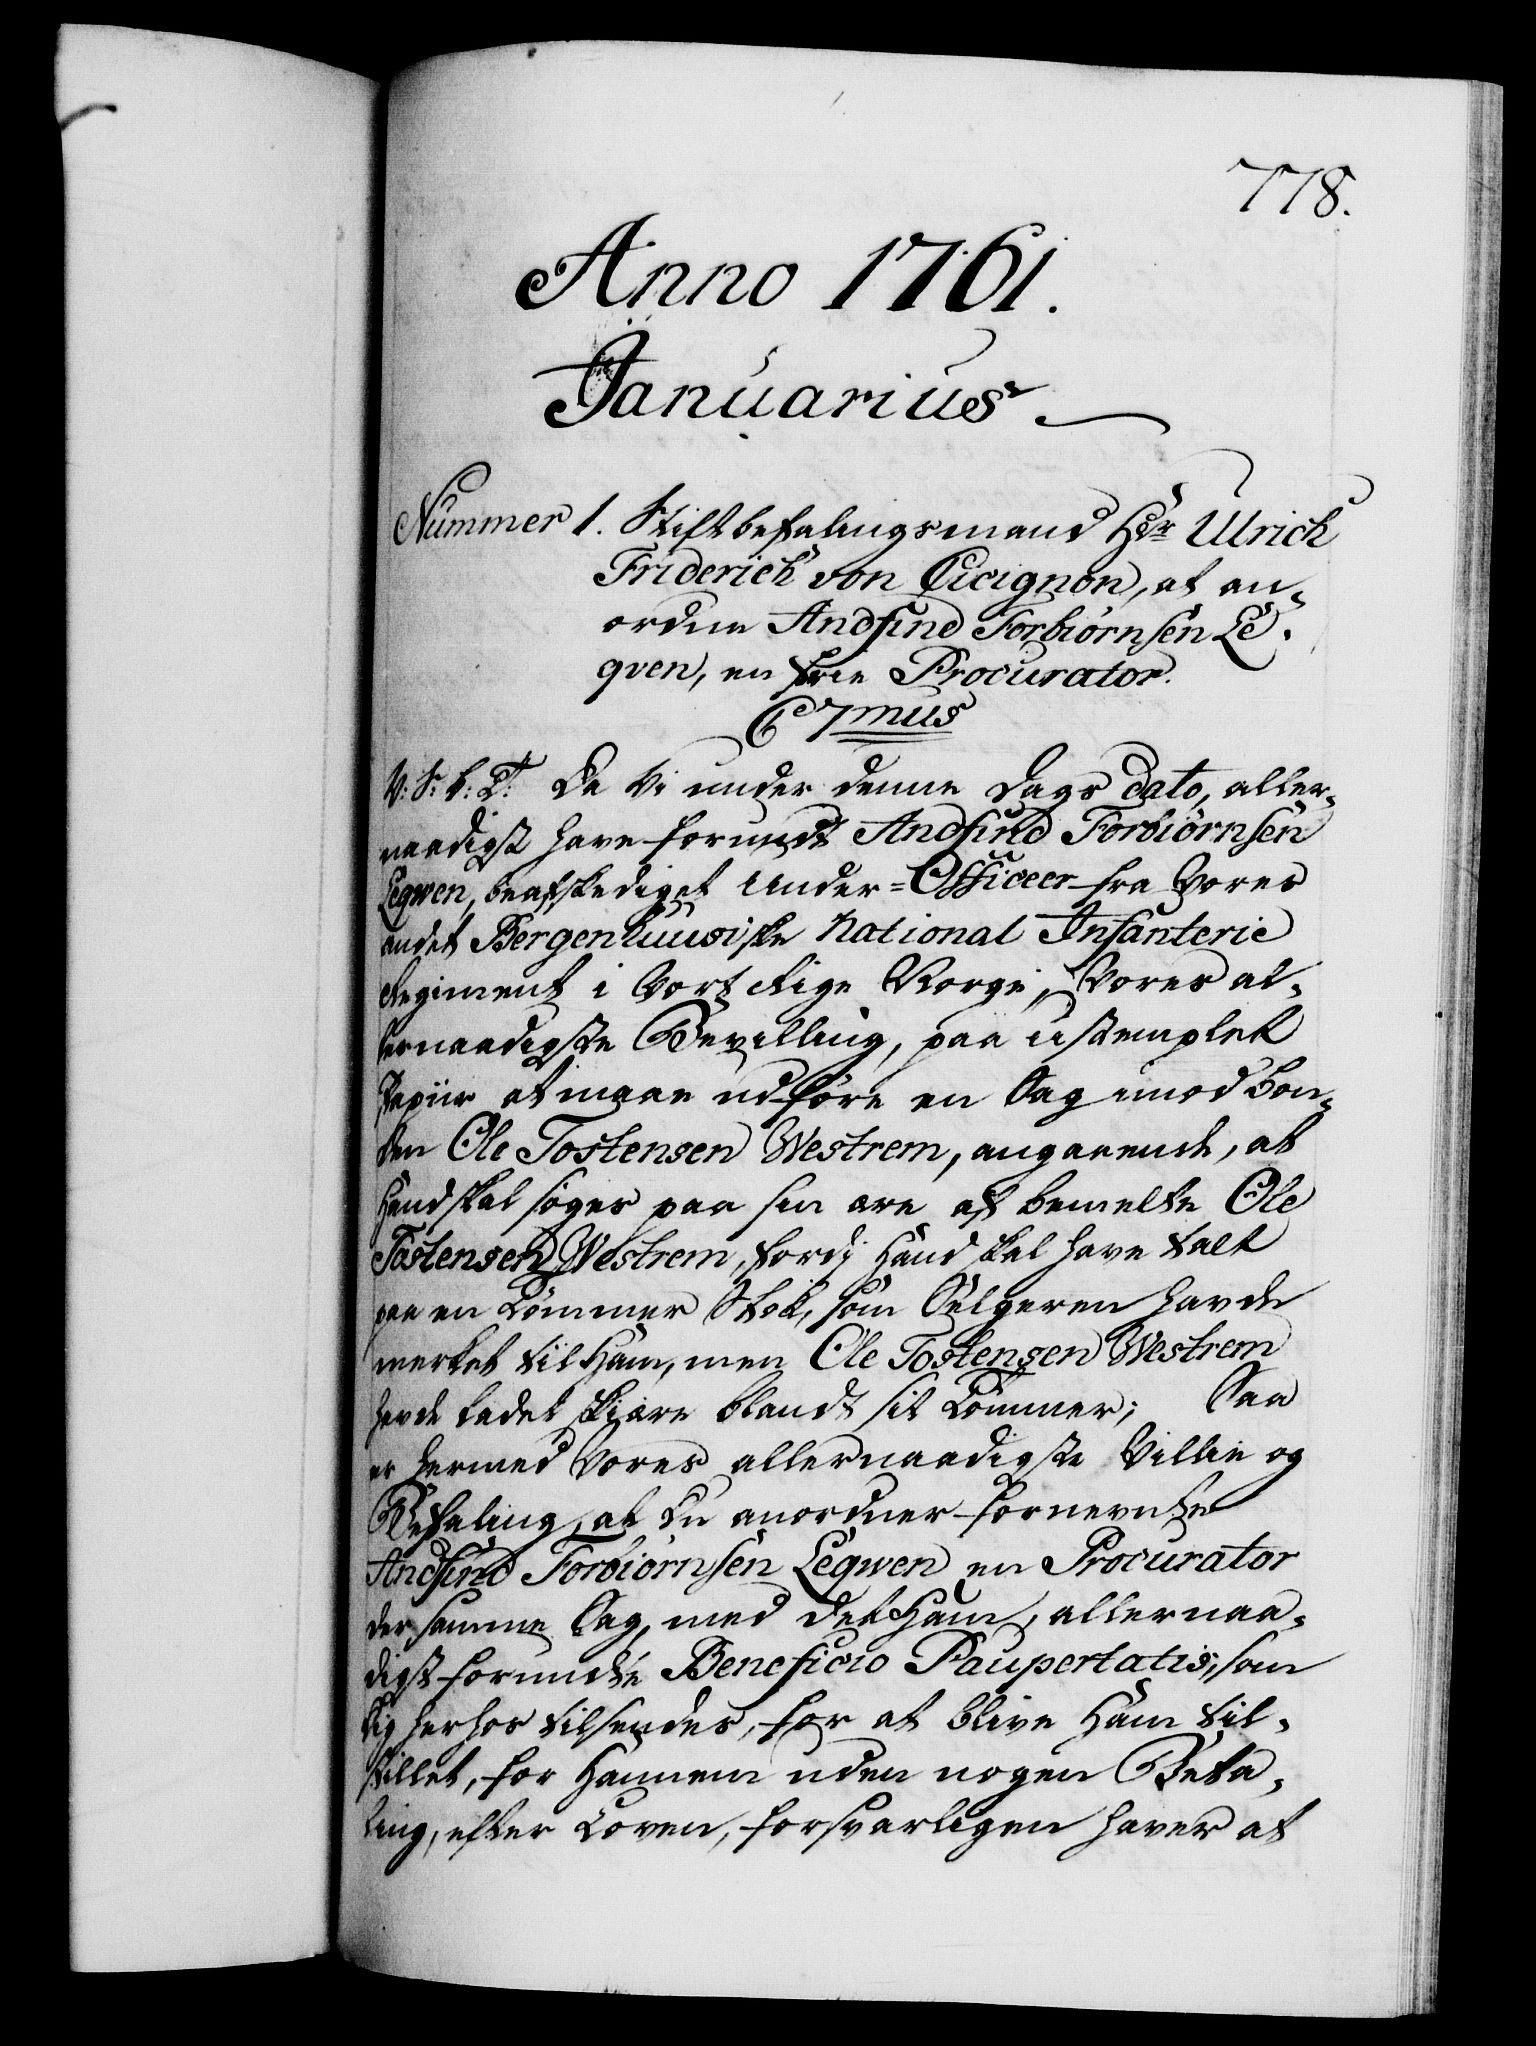 778.
Anno 1761.
Januarius
Nummer 1. Stiftbefalingsmand Hr Ulrich
Friderich von Cicignon, at an-
ordne Andfind Torbiørnsen Le-
qven, en frie Procurator.
C 7mus
V: S: b: T: Da Vi under denne Dags dato, aller-
naadigst have forundt Andfind Torbiørnsen
Leqwen, beafskediget Under-Officeer fra Vores
andet Bergenhuusiske National Infanterie
Regiment i Vort Rige Norge, Vores al-
lernaadigste Bevilling, paa ustemplet
Papiir at maae udføre en Sag imod Bon-
den Ole Tostensen Westrem, angaaende, at
Hand skal søges paa sin ære af bemelte Ole
Tostensen Westrem, fordj Hand skal have talt
paa en Tømmer Stok, som Sælgeren havde
merket til Ham, men Ole Tostensen Westrem
havde ladet skiære blandt sit Tømmer; Saa
er hermed Vores allernaadigste Villie og
Befaling, at Du anordner fornevnte
Andfind Torbiørnsen Leqwen en Procurator
der samme Sag, med det Ham, allernaa-
digst forundte Beneficio Paupertatis, som
Dig herhos tilsendes, for at blive Ham til-
stillet, for Hannem uden nogen Beta-
ling, efter Loven, forsvarligen haver at